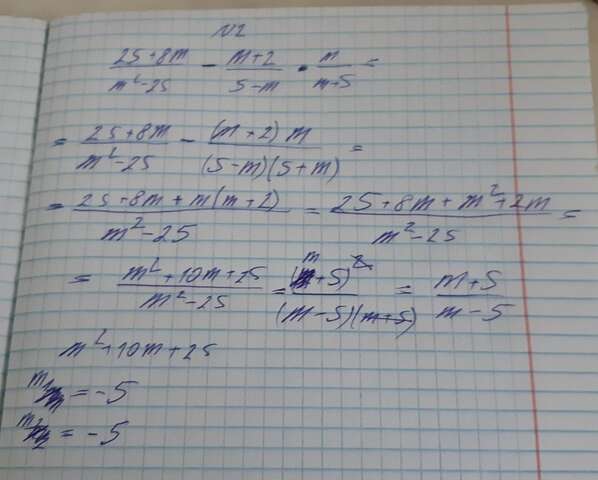 N2
(25+8m)/(m²-25) - (m+2)/(5-m) · m/(m+5) =
= (25+8m)/(m²-25) - ((m+2)m)/((5-m)(5+m)) =
= (25+8m+m(m+2))/(m²-25) = (25+8m+m²+2m)/(m²-25) =
= (m²+10m+25)/(m²-25) = (m+5)²/((m-5)(m+5)) = (m+5)/(m-5)
m²+10m+25
m₁ = -5
m₂ = -5